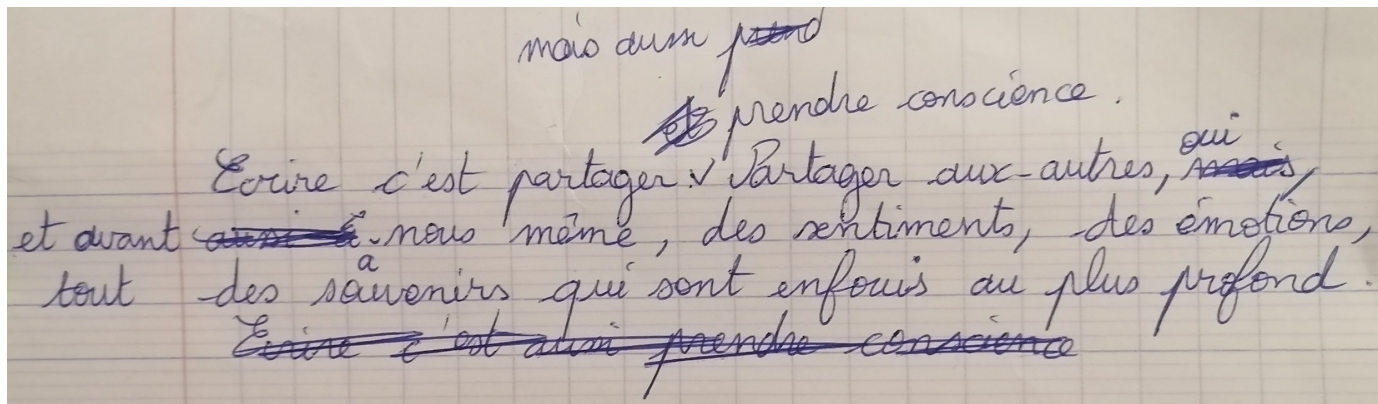 mais aussi prend
prendre conscience.
qui
Ecrire c'est partager. Partager aux-autres, mais,
et avant aussi à nous même, des sentiments, des émotions,
a
tout des souvenirs qui sont enfouis au plus profond.
Ecrire c'est aussi prendre conscience